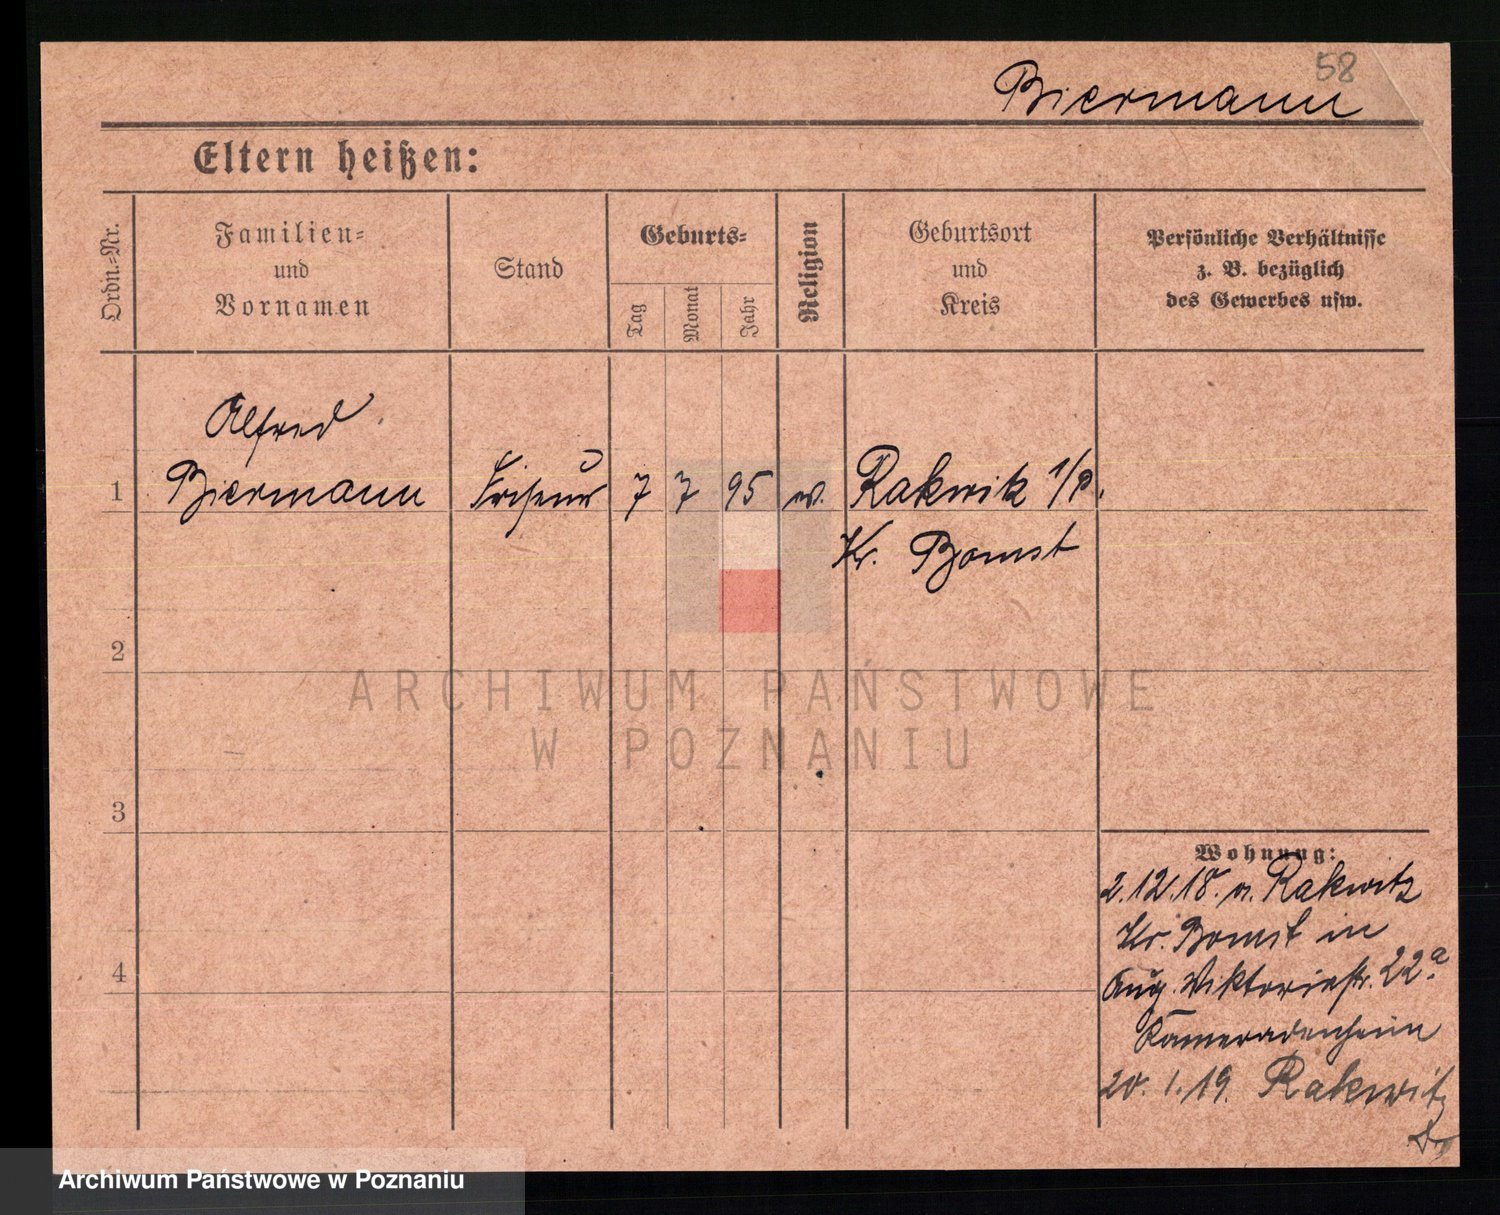 58
Biermann
Eltern heißen:
Ordn.=Nr.
Familien=
und
Vornamen
Stand
Geburts=
Tag
Monat
Jahr
Religion
Geburtsort
und
Kreis
Persönliche Verhältnisse
z. B. bezüglich
des Gewerbes usw.
Alfred
1 Biermann Friseur 7 7 95 w. Rakwitz i/P.
Kr. Bomst
2
3
4
Wohnung:
2.12.18. v. Rakwitz
Kr. Bomst in
Aug. Viktoriastr. 22a
Kameradenheim
20.1.19. Rakwitz
ARCHIWUM PAŃSTWOWE
W POZNANIU
Archiwum Państwowe w Poznaniu